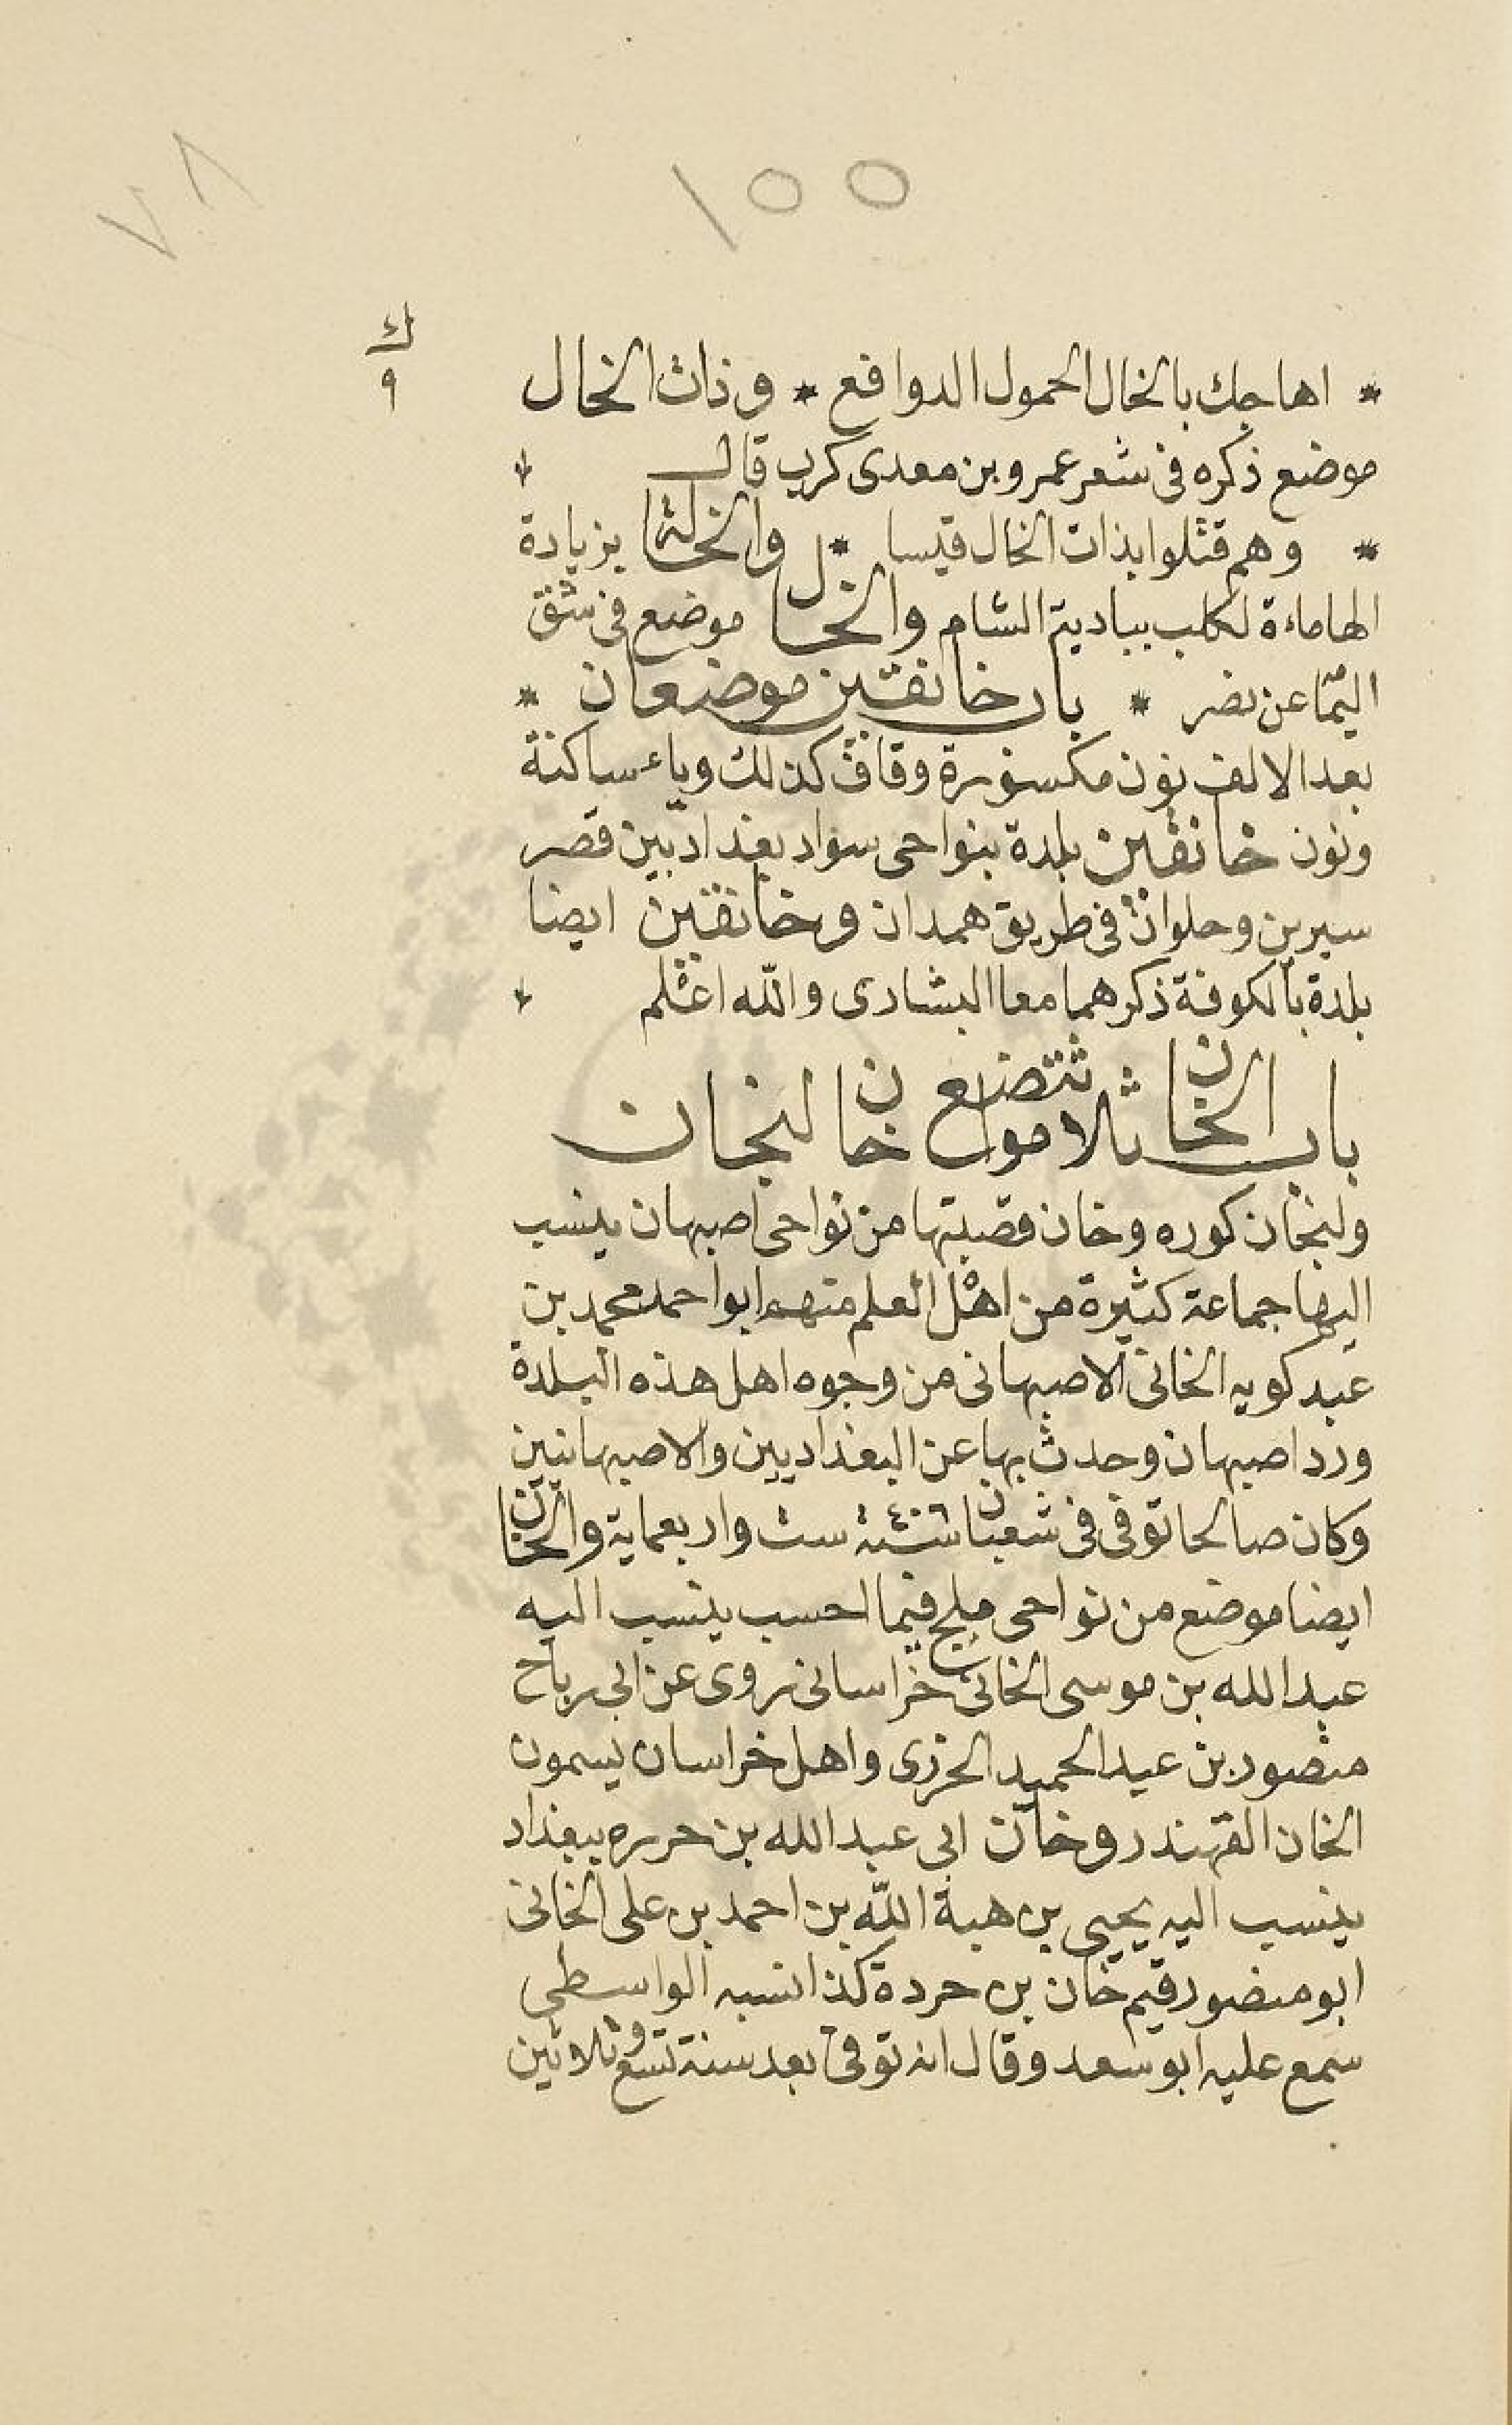 ١٥٥
٧٨
ك
٩
* اهاجك بالخال الحمول الدوافع * وذات الخال
موضع ذكره فى شعر عمرو بن معدى كرب قال
* وهم قتلوا بذات الخال قيسا * والخالة بزيادة
الهاماءة لكلب ببادية الشام والخال موضع فى شق
اليمّا عن نصر * باب خانقين موضعان *
بعد الالف نون مكسورة وقاف كذلك وياء ساكنة
ونون خانقين بلدة بنواحى سواد بغداد بين قصر
سيرين وحلوان فى طريق همدان وخانقين ايضا
بلدة بالكوفة ذكرهما معا البشارى والله اعلم
باب الخان ثلاثة مواضع خان لنجان
ولنجان كوره وخان قصبتها من نواحى اصبهان ينسب
اليها جماعة كثيرة من اهل العلم منهم ابو احمد محمد بن
عبد كويه الخانى الاصبهانى من وجوه اهل هذه البلدة
ورد اصبهان وحدث بها عن البغداديين والاصبهانيين
وكان صالحا توفى فى شعبان سنة ٤٠٦ ست واربعماية والخان
ايضا موضع من نواحى ملج فيما احسب ينسب اليه
عبد الله بن موسى الخانى خراسانى روى عن ابى رباح
منصور بن عبد الحميد الحزرى واهل خراسان يسمون
الخان القهندر وخان ابى عبد الله بن حرره ببغداد
ينسب اليه يحيى بن هبة الله بن احمد بن على الخانى
ابو منصور قيم خان بن حردة كذا نسبه الواسطى
سمع عليه ابو سعد وقال انه توفى بعد سنة تسع وثلاثين